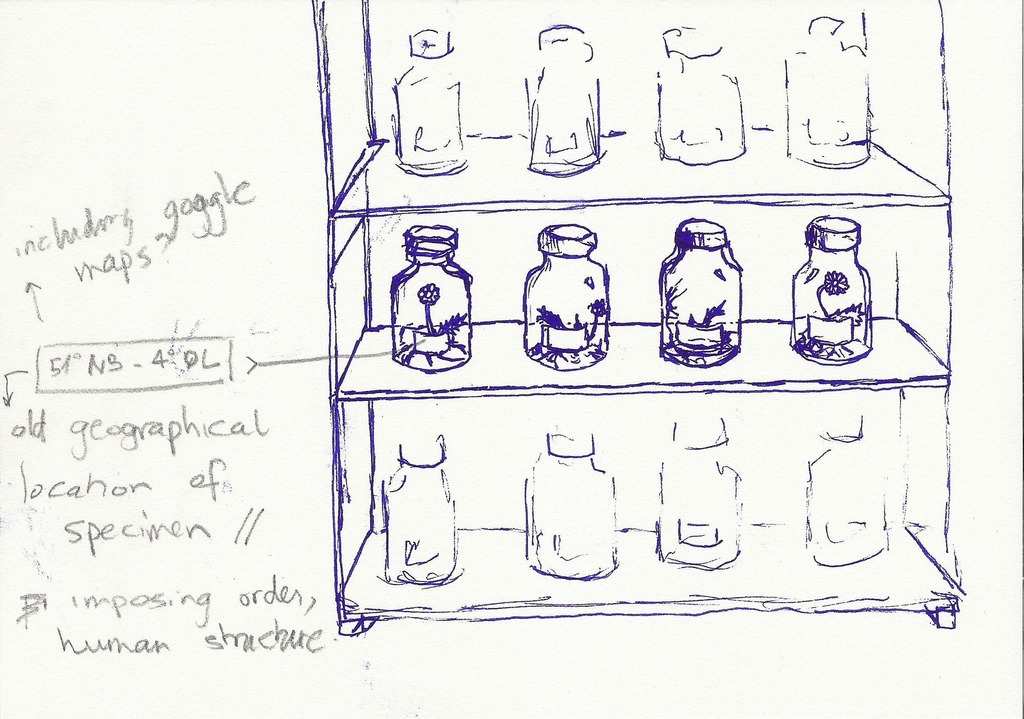 including goggle
maps?
51° NB - 4° OL
old geographical
location of
specimen //
imposing order,
human structure